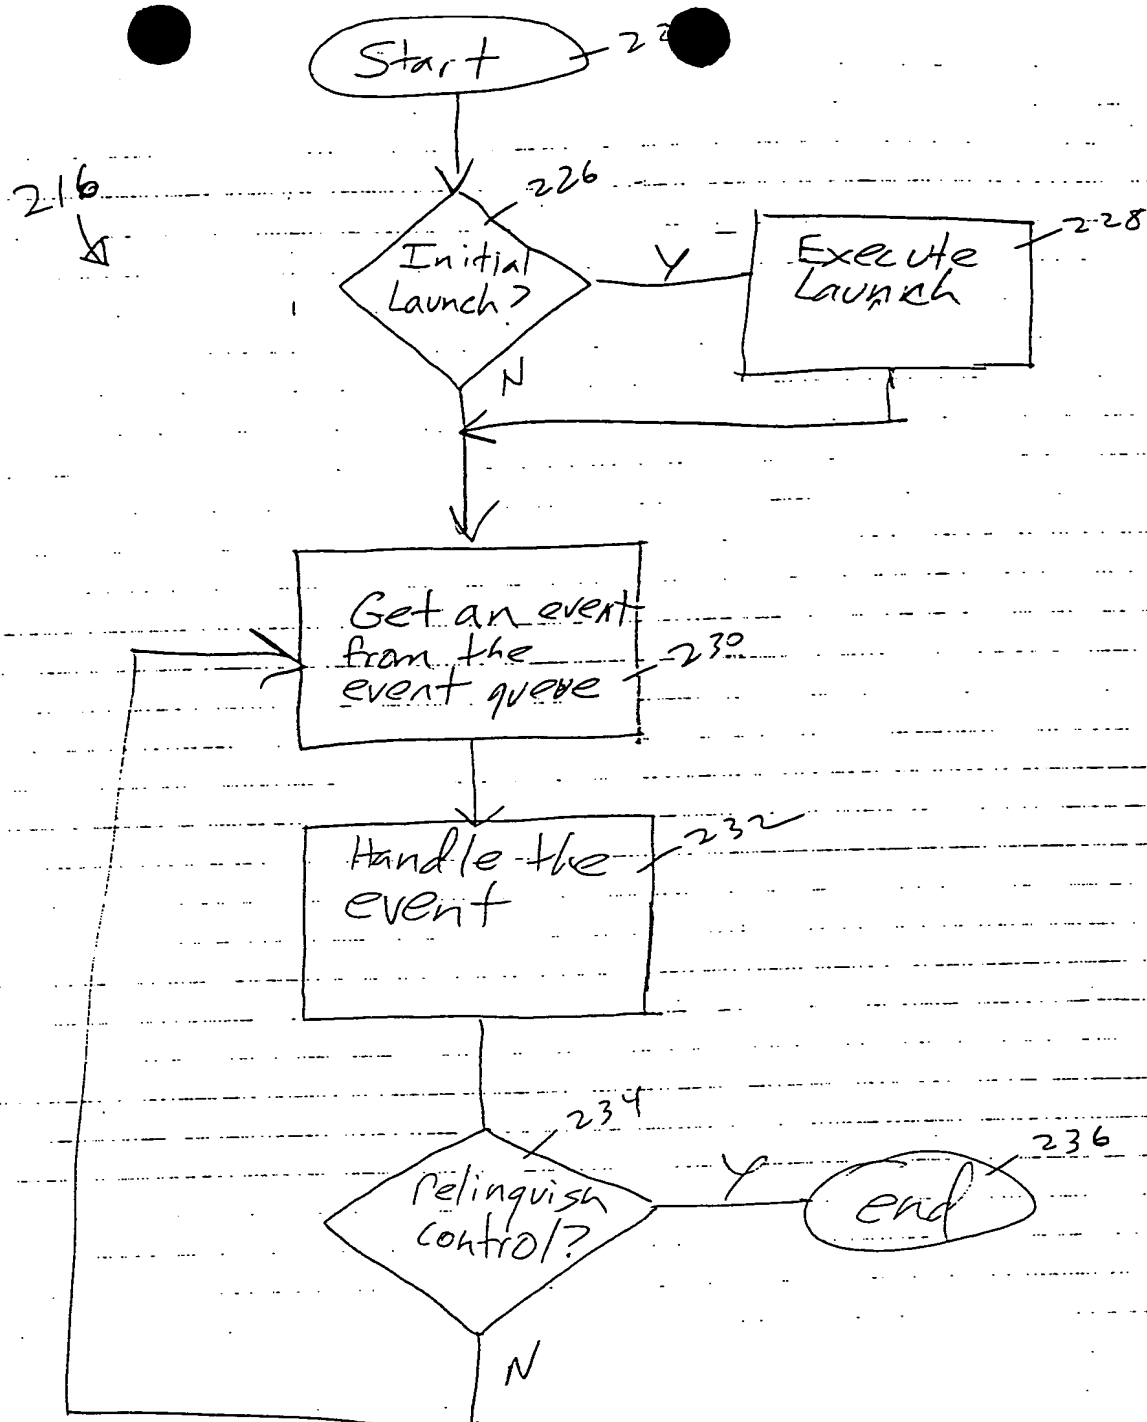 Start
216
226
Initial
Launch?
Y
N
Execute
Launch
228
Get an event
from the
event queue
230
Handle the
event
232
234
relinquish
control?
Y
end
236
N